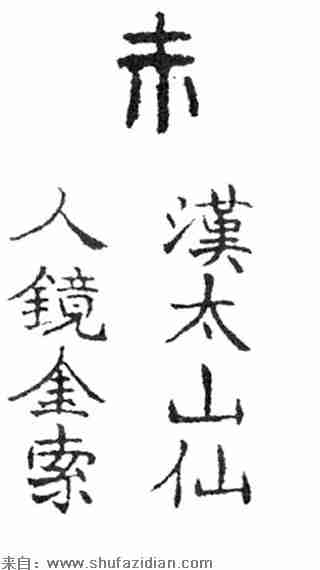 未
漢太山仙
人鏡金索
来自：www.shufazidian.com